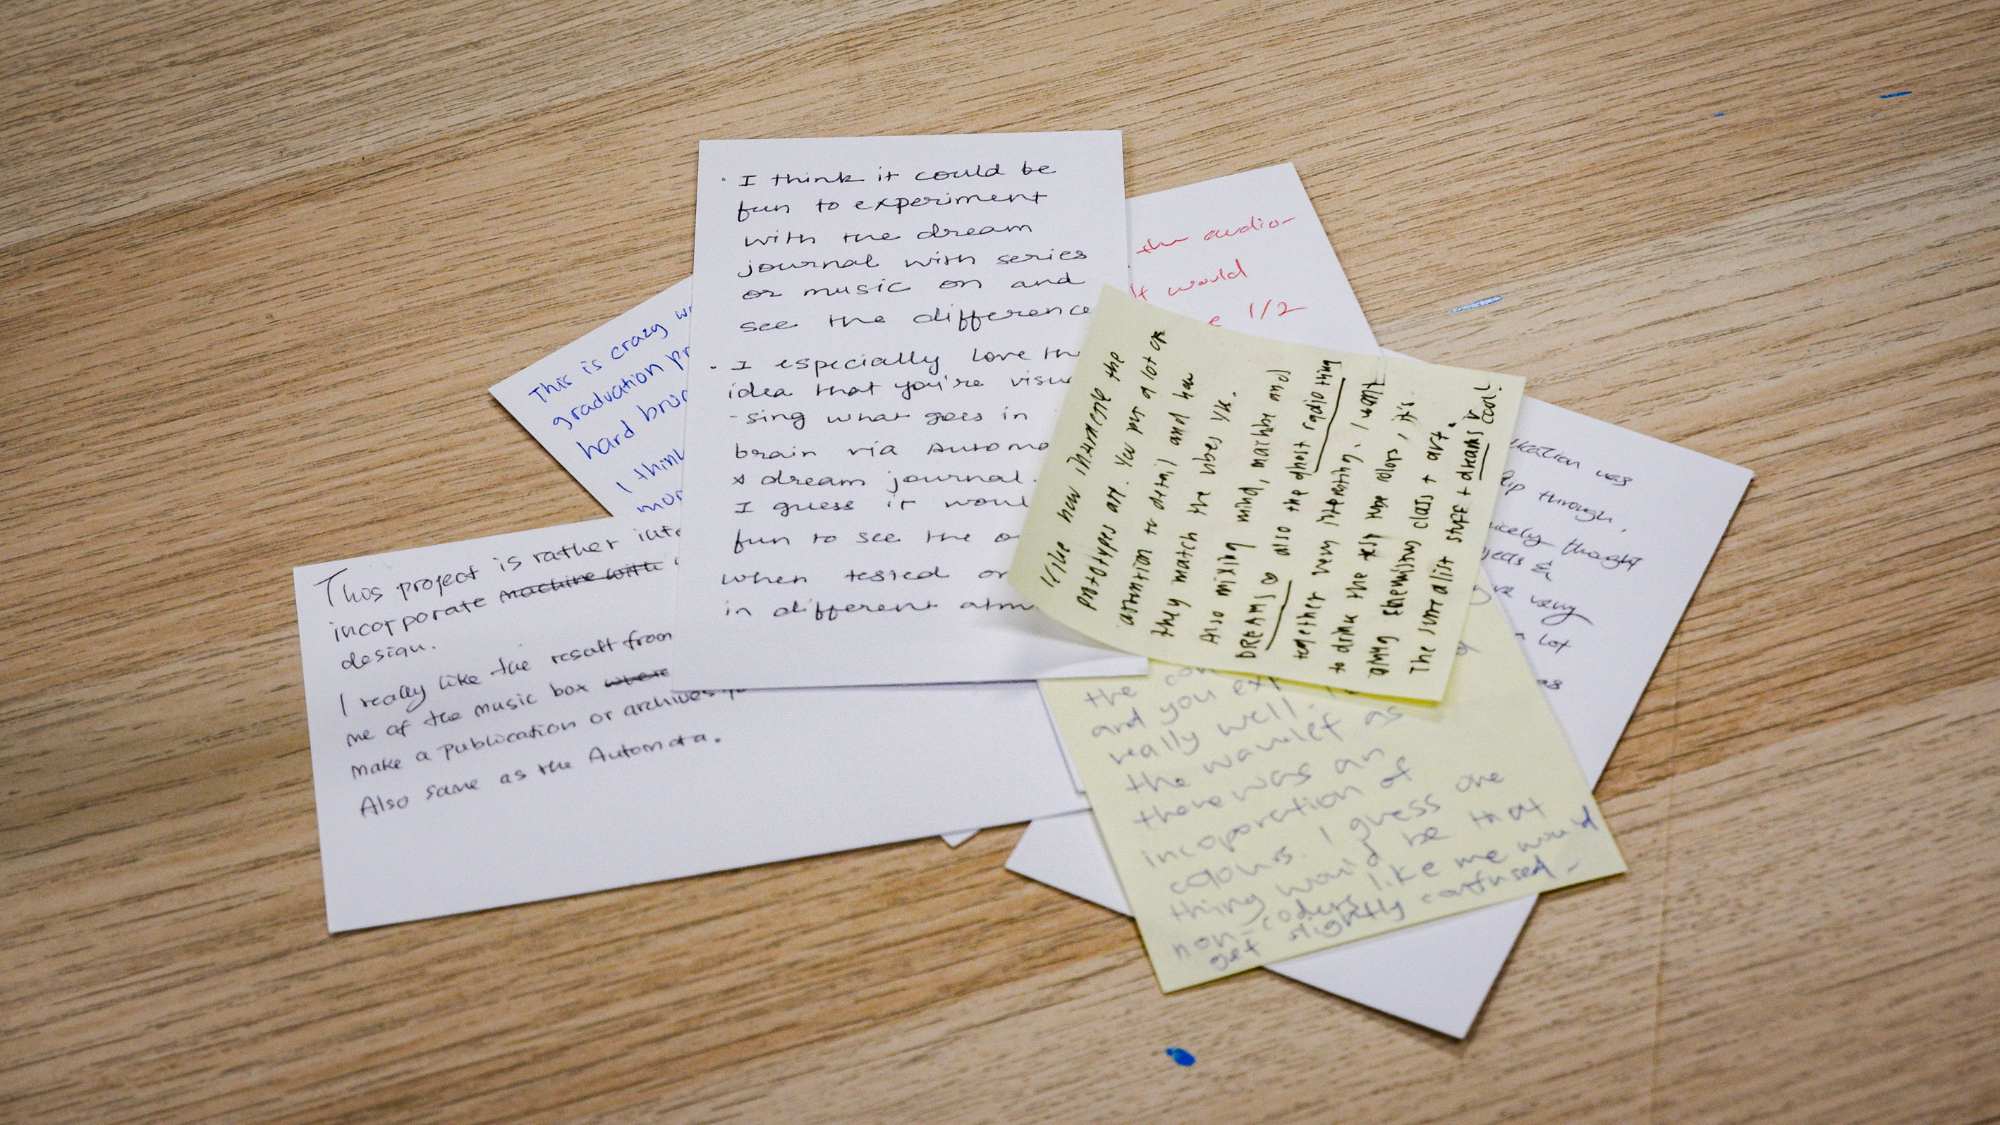 · I think it could be
fun to experiment
with the dream
journal with series
or music on and
see the difference
· I especially love the
idea that you're visu
-sing what goes in
brain via Automa
& dream journal.
I guess it woul
fun to see the o
when tested on
in different atm
This is crazy w
graduation pr
hard bro
I think
mor
the audio-
It would
1/2
This project is rather inte
incorporate machine with
design.
I really like the result from
me of the music box where
make a publication or archives
Also same as the Automata.
I like how intricate the
prototypes are. You put a lot of
attention to detail and how
they match the vibes yk.
Also mixing mind, machine and
DREAMS ♡ also the ghost radio thing
together very interesting. I want
to drink the
always class + art.
The surrealist stuff + dreams v
cool!
was
flip through.
nicely thought
very
lot
the con
and you exp
really well.
the as
there was an
incoporation of
colours. I guess one
thing would be that
non-coders like me would
get slightly confused -